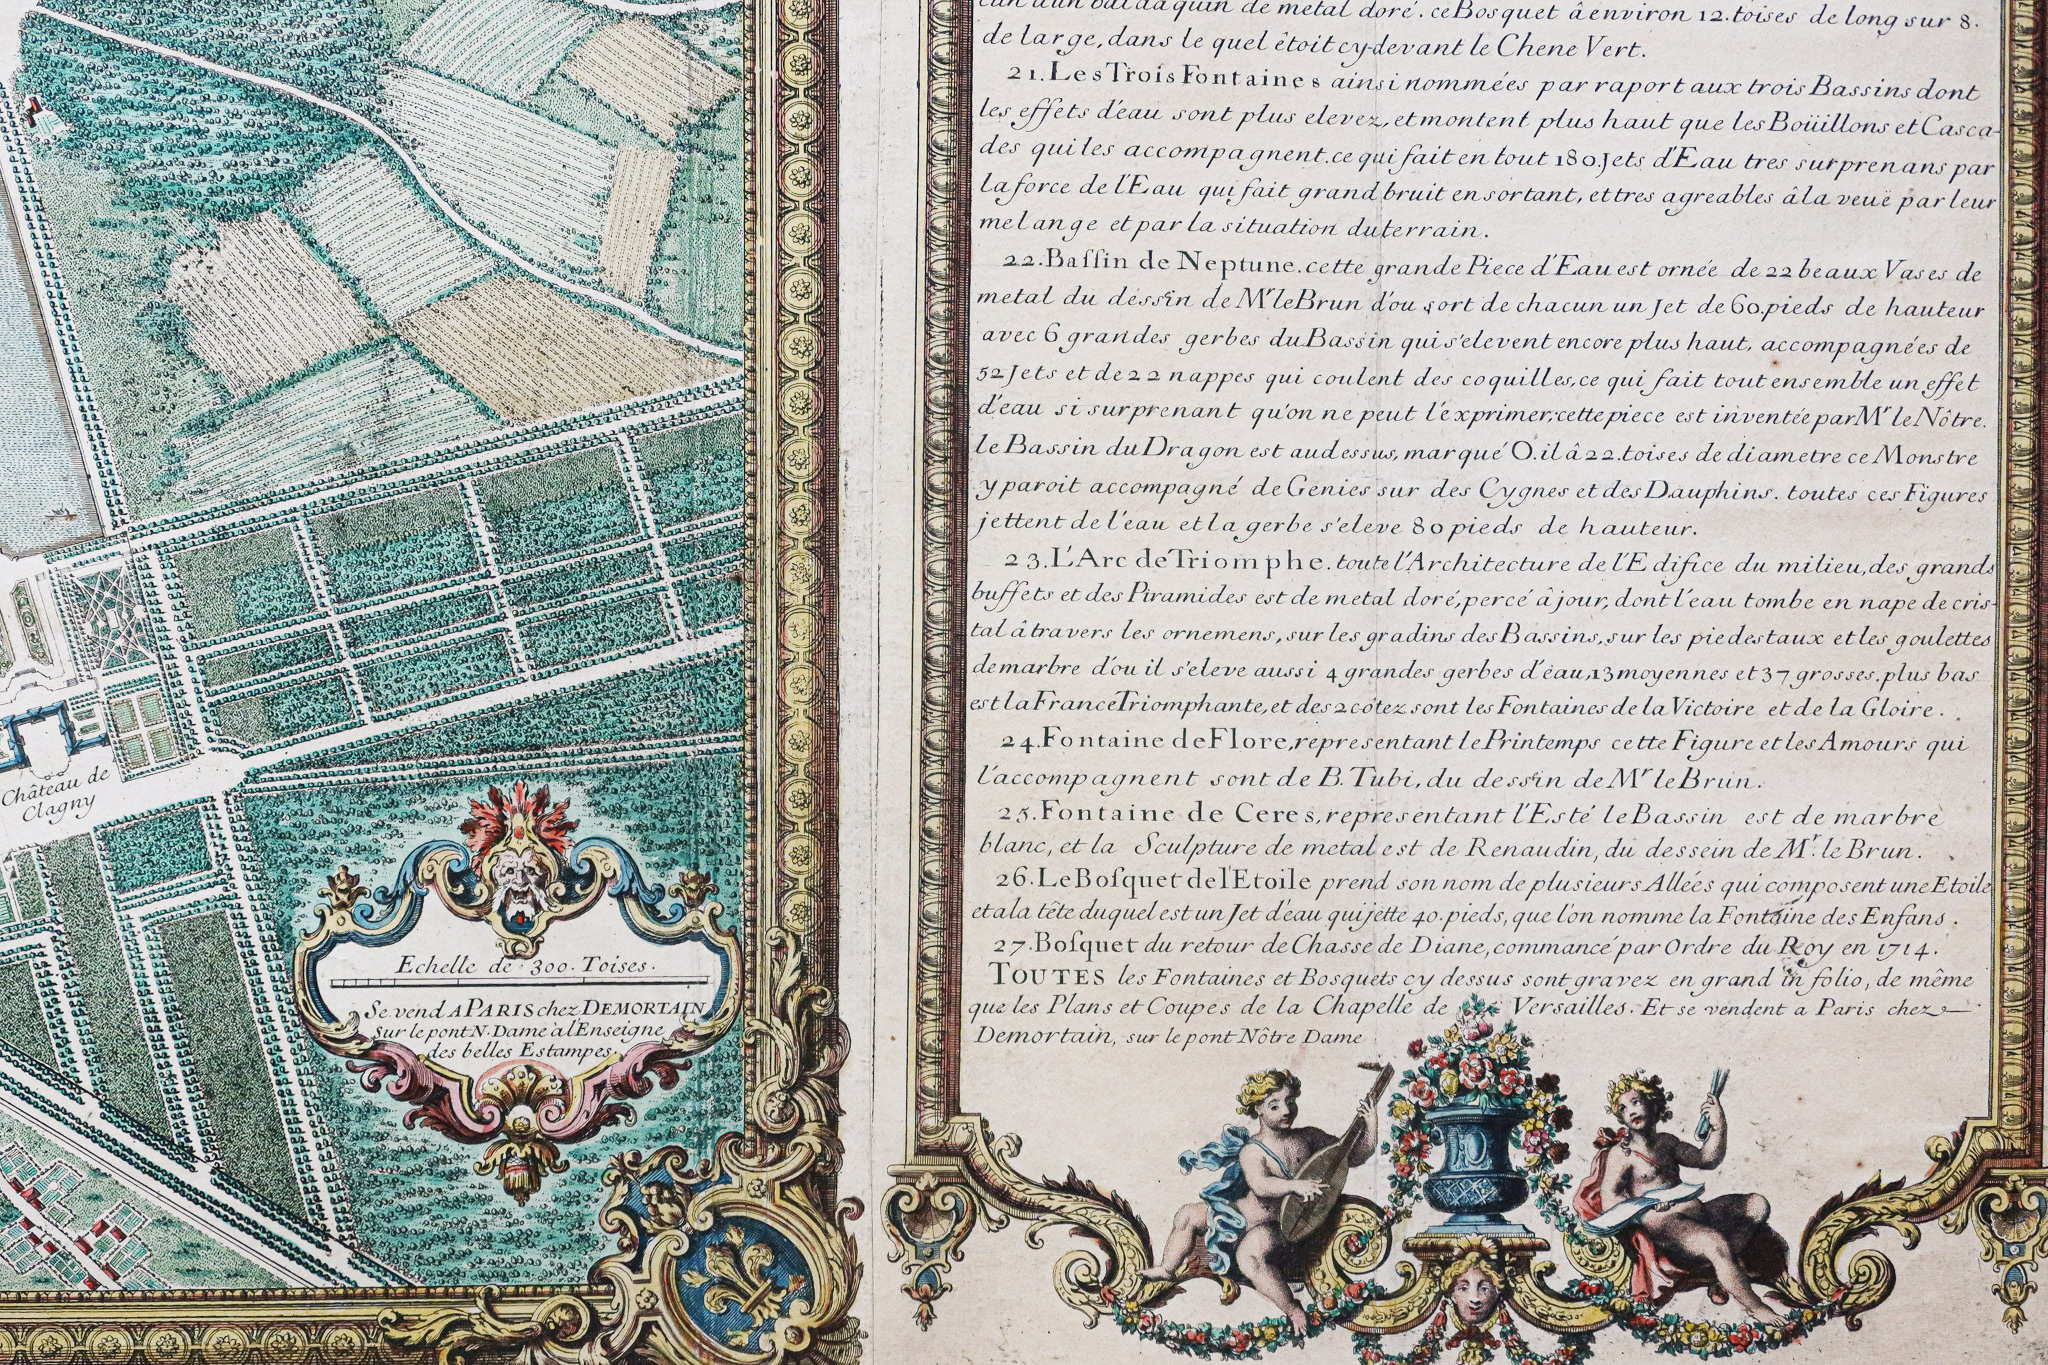 Château de
Clagny
Echelle de 300. Toises.
Se vend A PARIS chez DEMORTAIN
sur le pont N. Dame a l'Enseigne
des belles Estampes.
de metal doré. ce Bosquet â environ 12. toises de long sur 8.
de large, dans le quel êtoit cy-devant le Chene Vert.
21. Les Trois Fontaines ainsi nommées par raport aux trois Bassins dont
les effets d'eau sont plus elevez, et montent plus haut que les Boüillons et Casca-
des qui les accompagnent. ce qui fait en tout 180. Jets d'Eau tres surprenans par
la force de l'Eau qui fait grand bruit en sortant, et tres agreables â la veuë par leur
melange et par la situation du terrain.
22. Baſſin de Neptune. cette grande Piece d'Eau est ornée de 22 beaux Vases de
metal du dessin de Mr le Brun d'ou sort de chacun un Jet de 60. pieds de hauteur
avec 6 grandes gerbes du Bassin qui s'elevent encore plus haut, accompagnées de
52 Jets et de 22 nappes qui coulent des coquilles, ce qui fait tout ensemble un effet
d'eau si surprenant qu'on ne peut l'exprimer; cette piece est inventée par Mr le Nôtre.
le Bassin du Dragon est au dessus, marqué O. il â 22. toises de diametre ce Monstre
y paroit accompagné de Genies sur des Cygnes et des Dauphins. toutes ces Figures
jettent de l'eau et la gerbe s'eleve 80 pieds de hauteur.
23. L'Arc de Triomphe. toute l'Architecture de l'Edifice du milieu, des grands
buffets et des Piramides est de metal doré, percé â jour, dont l'eau tombe en nape de cris-
tal â travers les ornemens, sur les gradins des Bassins, sur les piedestaux et les goulettes
de marbre d'ou il s'eleve aussi 4 grandes gerbes d'eau, 13 moyennes et 37 grosses. plus bas
est la France Triomphante, et des 2 côtez sont les Fontaines de la Victoire et de la Gloire.
24. Fontaine de Flore, representant le Printemps cette Figure et les Amours qui
l'accompagnent sont de B. Tubi, du dessin de Mr le Brun.
25. Fontaine de Ceres, representant l'Esté le Bassin est de marbre
blanc, et la Sculpture de metal est de Renaudin, du dessein de Mr. le Brun.
26. Le Boſquet de l'Etoile prend son nom de plusieurs Allées qui composent une Etoile
et a la tête duquel est un Jet d'eau qui jette 40. pieds, que l'on nomme la Fontaine des Enfans.
27. Boſquet du retour de Chasse de Diane, commancé par Ordre du Roy en 1714.
TOUTES les Fontaines et Bosquets cy dessus sont gravez en grand in folio, de même
que les Plans et Coupes de la Chapelle de Versailles. Et se vendent a Paris chez
Demortain, sur le pont Nôtre Dame